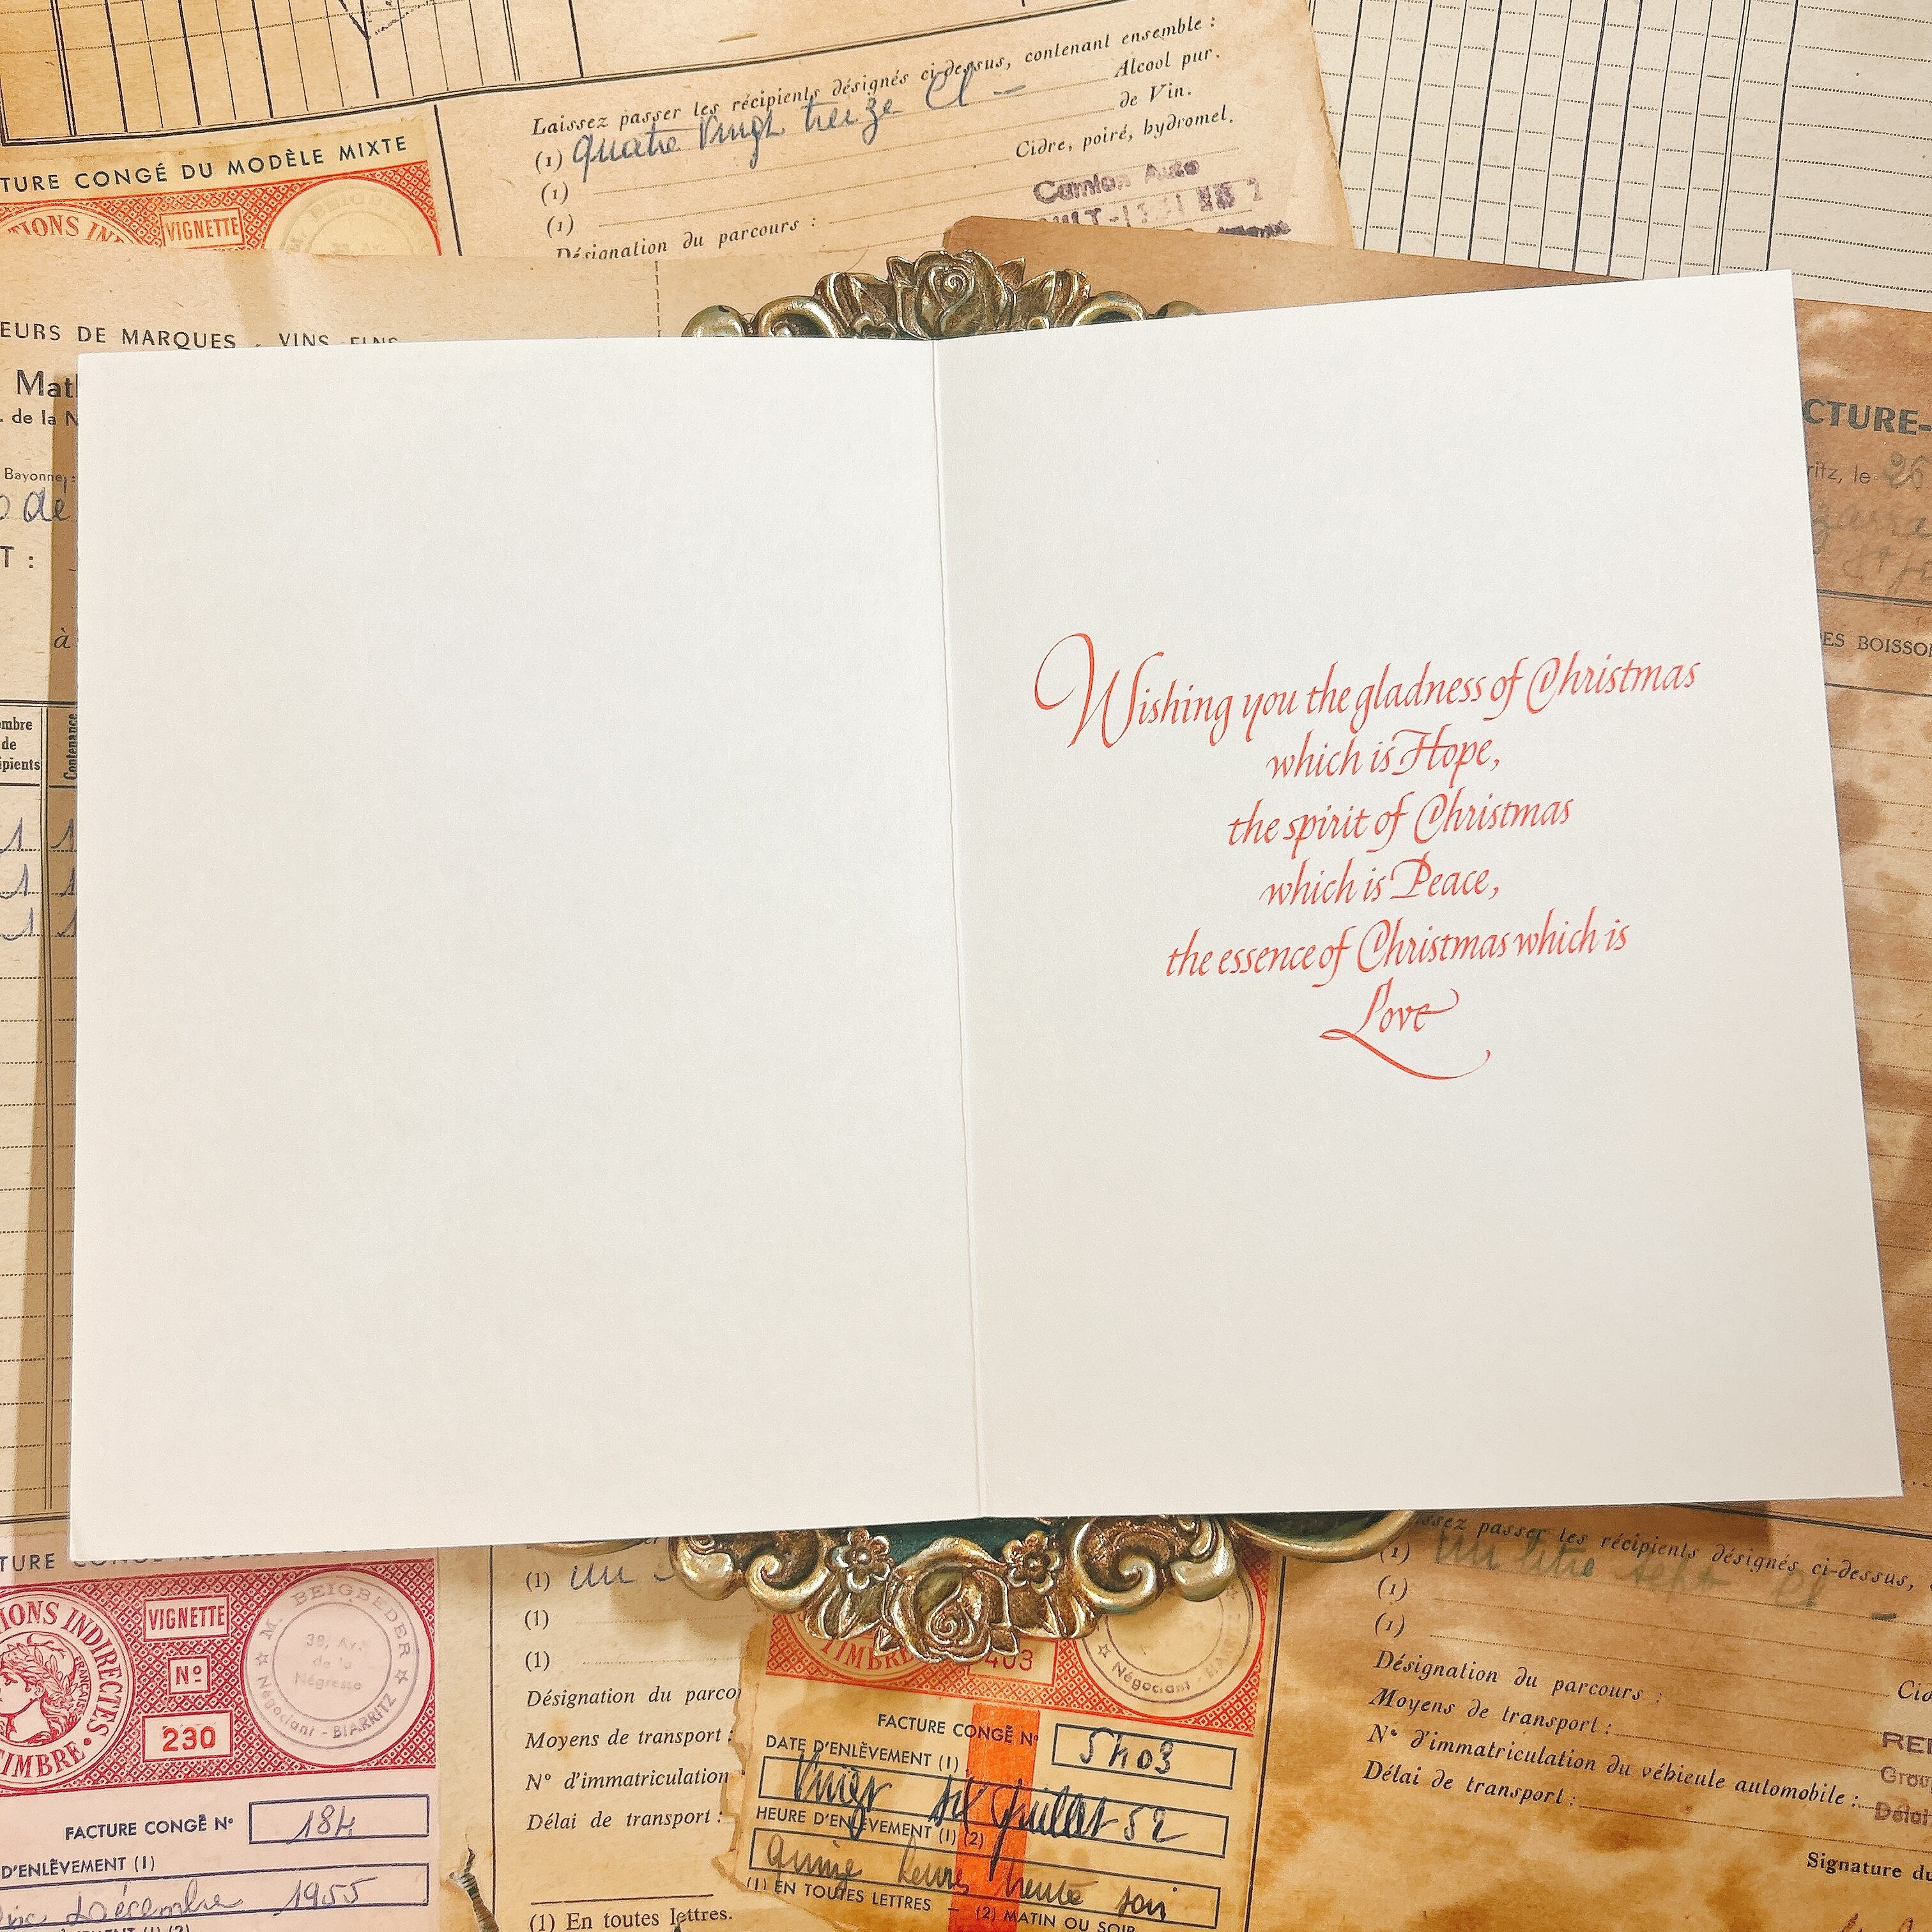 Laissez passer les récipients désignés ci-dessus, contenant ensemble :
(1) quatre vingt treize Cl — Alcool pur.
(1) de Vin.
(1) Cidre, poiré, hydromel.
Camion Auto
Désignation du parcours :
TURE CONGÉ DU MODÈLE MIXTE
VIGNETTE
EURS DE MARQUES . VINS FINS
Mat
. de la N
Bayonne
de
T :
à
ombre
de
ipients
Contenance
1 1
1 1
1 1
CTURE-
ritz, le 26
ES BOISSO
Wishing you the gladness of Christmas
which is Hope,
the spirit of Christmas
which is Peace,
the essence of Christmas which is
Love
TIONS INDIRECTES
TIMBRE
FRANÇAISE
VIGNETTE
Nº
230
M. BEIGBEDER
39, Av.
de la
Négresse
Négociant - BIARRITZ
FACTURE CONGÉ Nº 184
D'ENLÈVEMENT (1)
Décembre 1955
(1) un
(1)
(1)
Désignation du parco
Moyens de transport :
Nº d'immatriculation
Délai de transport :
(1) En toutes lettres.
TIMBRE
403
Négociant - BIAR
FACTURE CONGÉ Nº 5403
DATE D'ENLÈVEMENT (1)
six Juillet 52
HEURE D'ENLÈVEMENT (1) (2)
quinze heures trente soir
(1) EN TOUTES LETTRES - (2) MATIN OU SOIR
ssez passer les récipients désignés ci-dessus,
(1) un litre sept Dl —
(1)
(1)
Désignation du parcours :
Cid
Moyens de transport :
Nº d'immatriculation du véhicule automobile :
Délai de transport :
Signature du